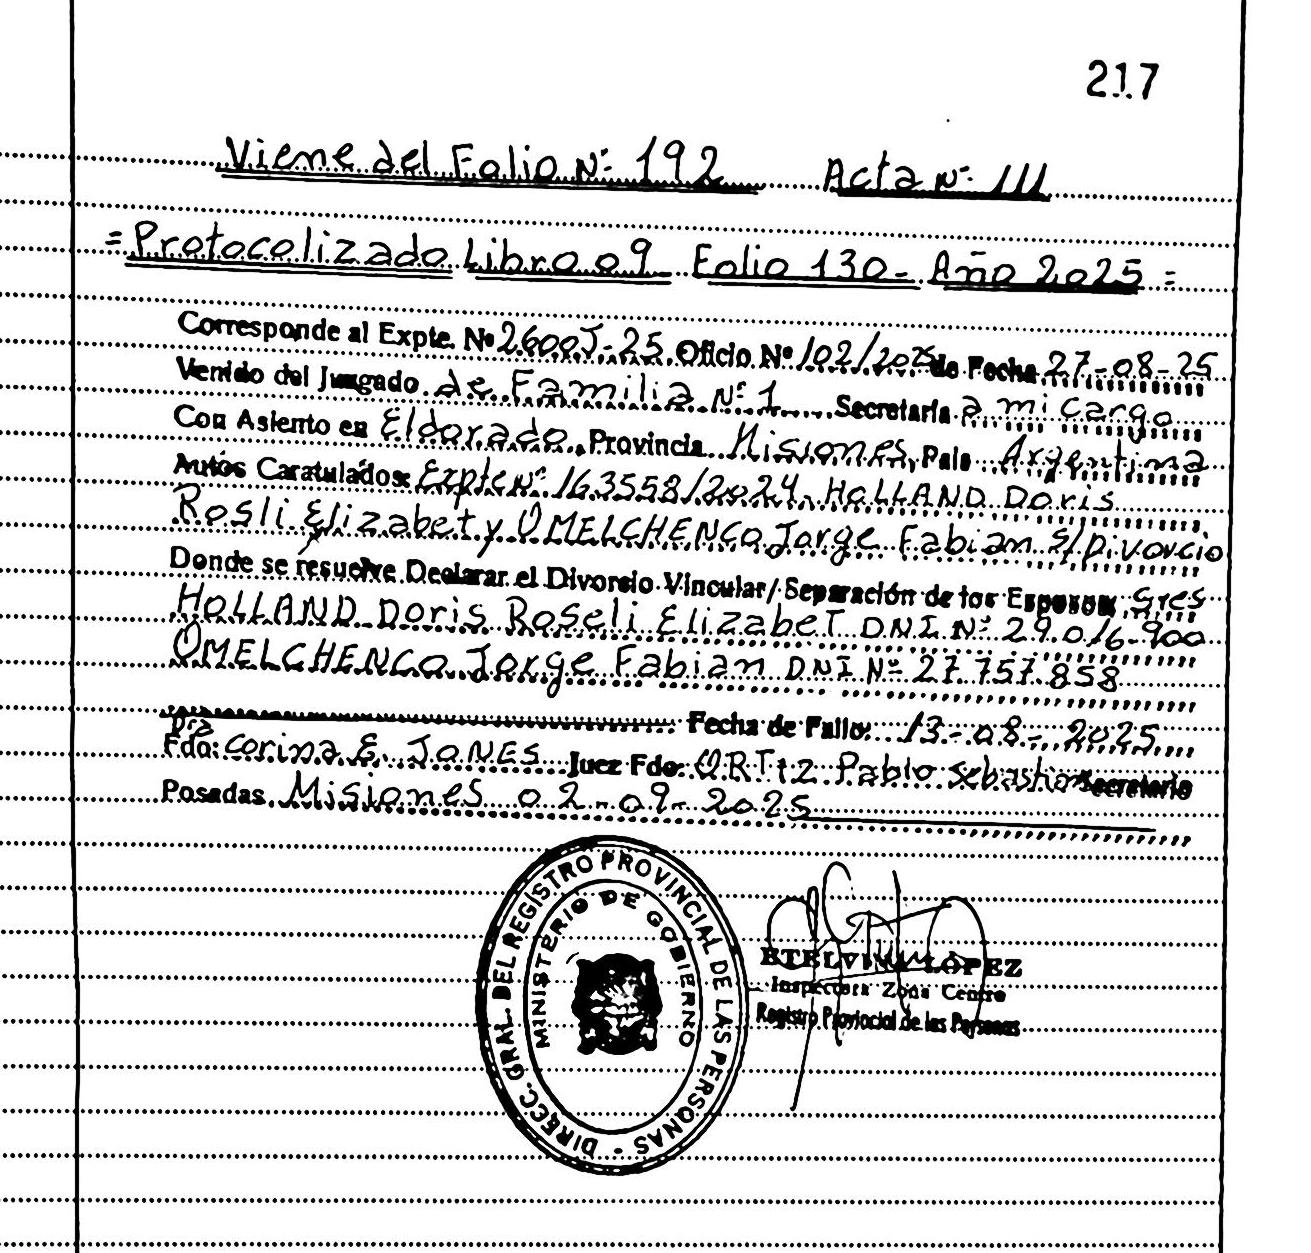 217
Viene del Folio Nº 192 Acta Nº 111
= Protocolizado Libro 09 Folio 130- Año 2025 =
Corresponde al Expte. Nº 2600J-25 Oficio Nº 102/2025 de Fecha 27-08-25
Venido del Juzgado de Familia Nº 1 Secretaría a mi cargo
Con Asiento en Eldorado Provincia Misiones País Argentina
Autos Caratulados: Expte Nº 163558/2024 HOLLAND Doris
Rosli Elizabet y OMELCHENCO Jorge Fabian s/Divorcio
Donde se resuelve Declarar el Divorcio Vincular/ Separación de los Esposos Sres
HOLLAND Doris Roseli Elizabet DNI Nº 29.016.900
OMELCHENCO Jorge Fabian DNI Nº 27.757.858
Fecha de Fallo: 13-08-2025
Dra
Fdo: Corina E. JONES Juez Fdo: ORTIZ Pablo Sebastian Secretario
Posadas, Misiones 02-09-2025
DIRECC. GRAL. DEL REGISTRO PROVINCIAL DE LAS PERSONAS -
MINISTERIO DE GOBIERNO
ETELVINA LOPEZ
Inspectora Zona Centro
Registro Provincial de las Personas